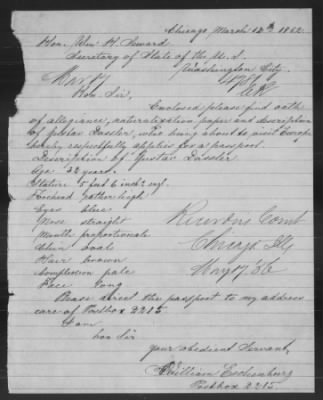 Chicago, March 12th 1862.
Hon. Wm. H. Seward
Secretary of State of the U. S.
Washington City.
Hon. Sir,
Enclosed please find oath
of allegiance, naturalization paper and description
of Gustav Dassler, who being about to visit Europe
hereby respectfully applies for a passport.
Description of Gustav Dassler
Age 32 years.
Stature 5 feet 6 inch engl.
Forehead rather high
Eyes blue
Nose straight
Mouth proportionate
Chin ovale
Hair brown
Complexion pale
Face long
Chicago Ills
Please direct the passport to my address
care of Postbox 2215
I am
hon Sir
your obedient Servant,
William Eschenburg
Postbox 2215